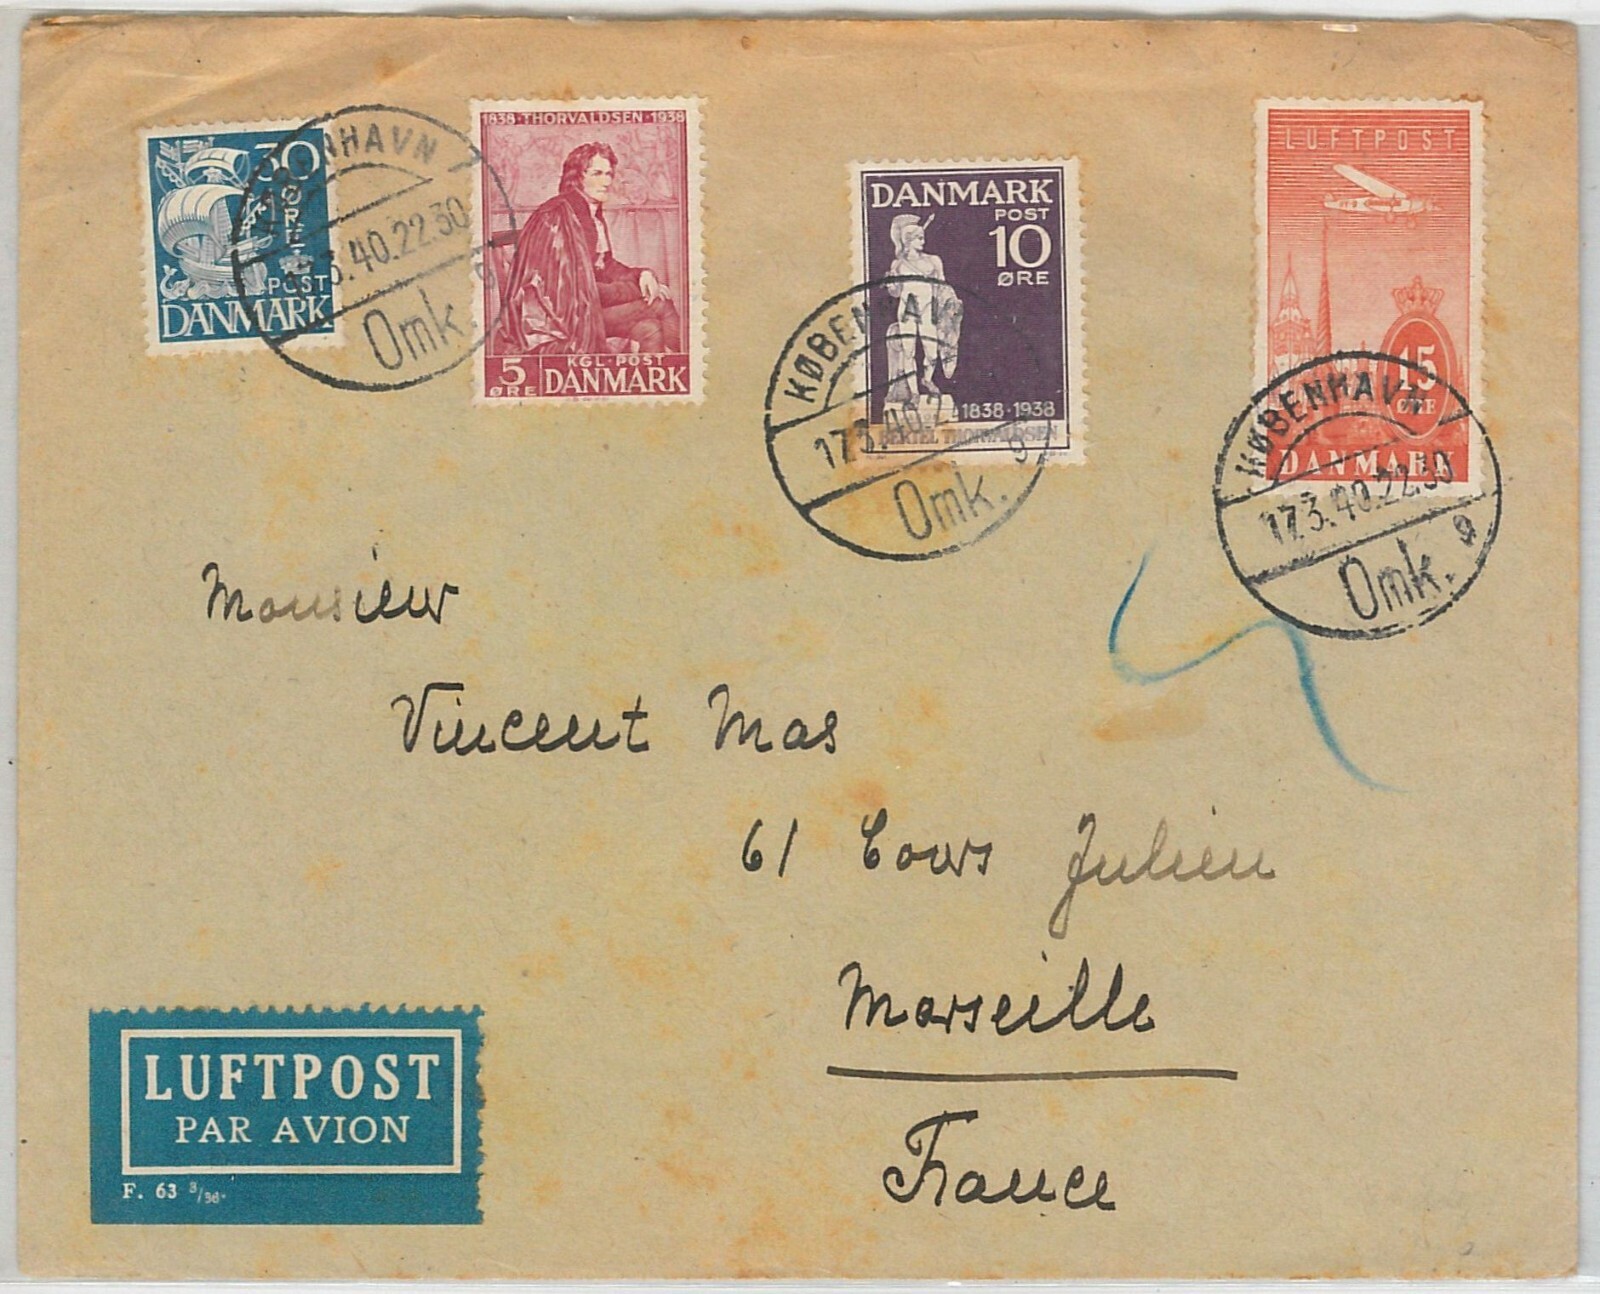 30
ØRE
POST
DANMARK
KØBENHAVN
17.3.40.22.30
Omk. g
1838·THORVALDSEN·1938
5 KGL·POST
ØRE DANMARK
DANMARK
POST
10
ØRE
1838·1938
BERTEL THORVALDSEN
KØBENHAVN
17.3.40.2
Omk. g
LUFTPOST
15
ØRE
DANMARK
KØBENHAVN
17.3.40.22.30
Omk. g
Monsieur
Vincent Mas
61 Cours Julien
Marseille
France
LUFTPOST
PAR AVION
F. 63 3/38.